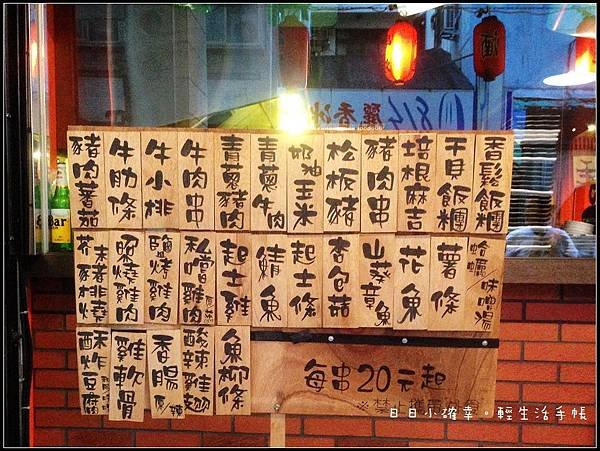 豬肉蕃茄
牛肋條
牛小排
牛肉串
青蔥豬肉
青蔥牛肉
奶油玉米
松板豬
豬肉串
培根麻吉
干貝飯糰
香鬆飯糰
芥末豬排燒
照燒雞肉
鹽烤雞肉
私嚐雞肉
起士雞
鯖魚
起士條
杏包菇
山葵章魚
花魚
薯條
蛤蠣/味噌湯
酥炸豆腐
雞軟骨
香腸 原/辣
酸辣雞翅
魚柳條
每串20元起
※禁止
日日小確幸。輕生活手帳